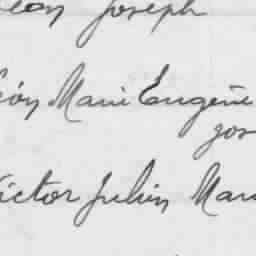 Léon Joseph
Léon Marie Eugène
Jos
Victor Julien Mari